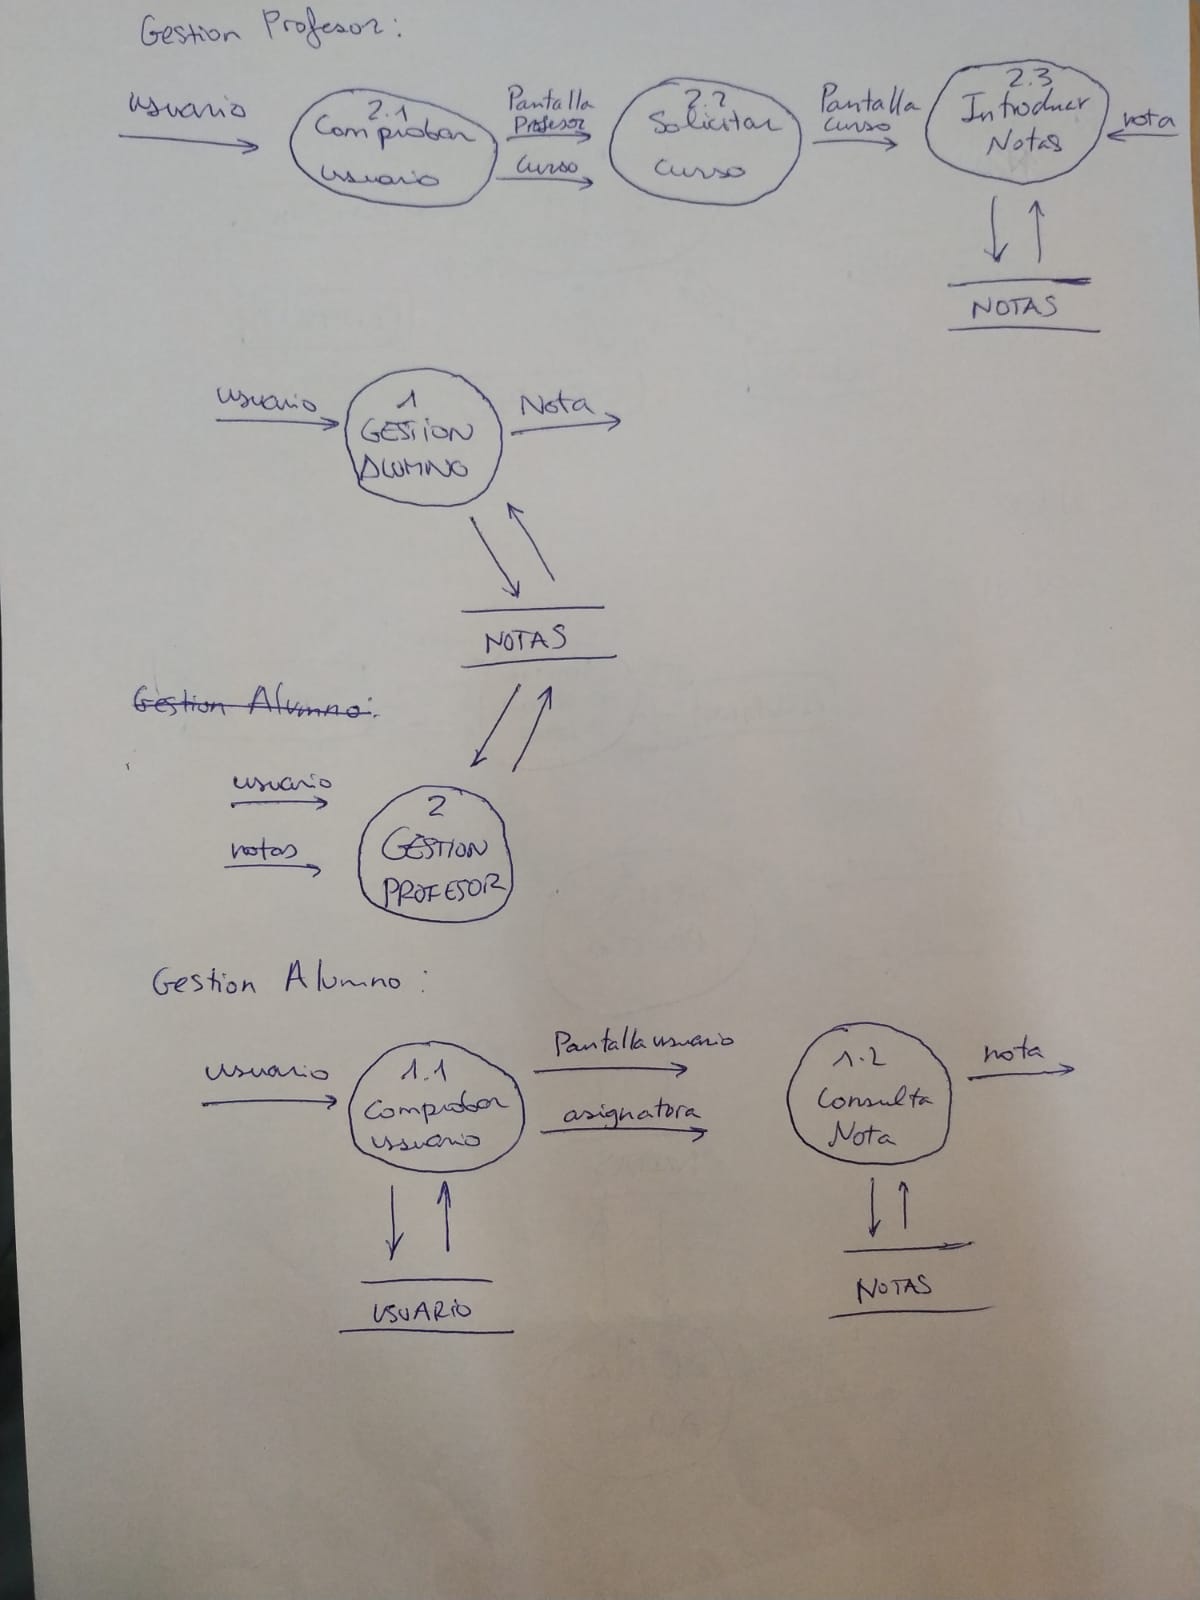 Gestion Profesor:
usuario
2.1
Comprobar
usuario
Pantalla
Profesor
Curso
2.2
Solicitar
curso
Pantalla
curso
2.3
Introducir
Notas
nota
NOTAS
usuario
1
GESTION
ALUMNO
Nota
NOTAS
Gestion Alumno:
usuario
notas
2
GESTION
PROFESOR
Gestion Alumno:
usuario
1.1
Comprobar
usuario
Pantalla usuario
asignatura
1.2
Consulta
Nota
nota
USUARIO
NOTAS